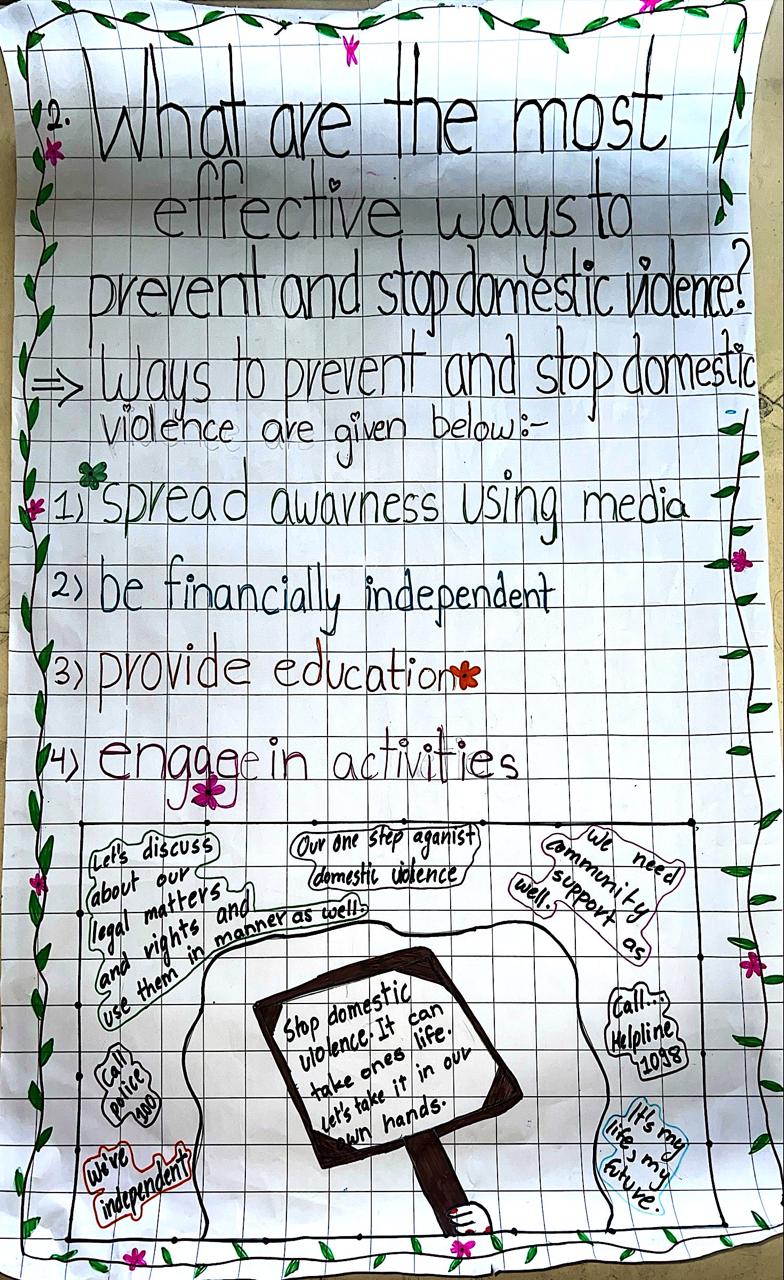 2. What are the most
effective ways to
prevent and stop domestic violence?
⇒ Ways to prevent and stop domestic
violence are given below:-
1) spread awarness using media
2) be financially independent
3) provide education
4) engage in activities
Let's discuss
about our
legal matters
and rights and
use them in manner as well.
Our one step aganist
domestic violence
We need
community
support as
well.
Stop domestic
violence. It can
take ones life.
Let's take it in our
own hands.
Call...
Helpline
1098
Call
police
100
It's my
life, my
future.
We're
independent